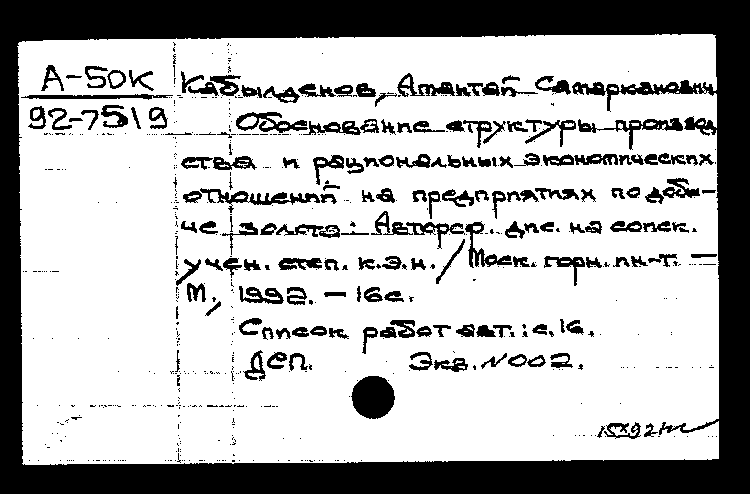 А-50К Кабылденов, Амантай Самарканович
92-7519 Обоснование структуры производ
ства и рациональных экономических
отношений на предприятиях по добы-
че золота: Автореф. дис. на соиск.
учен. степ. к.э.н. / Моск. горн. ин-т. —
М., 1992. — 16 с.
Список работ авт.: с. 16.
ДСП. Экз. N 002.